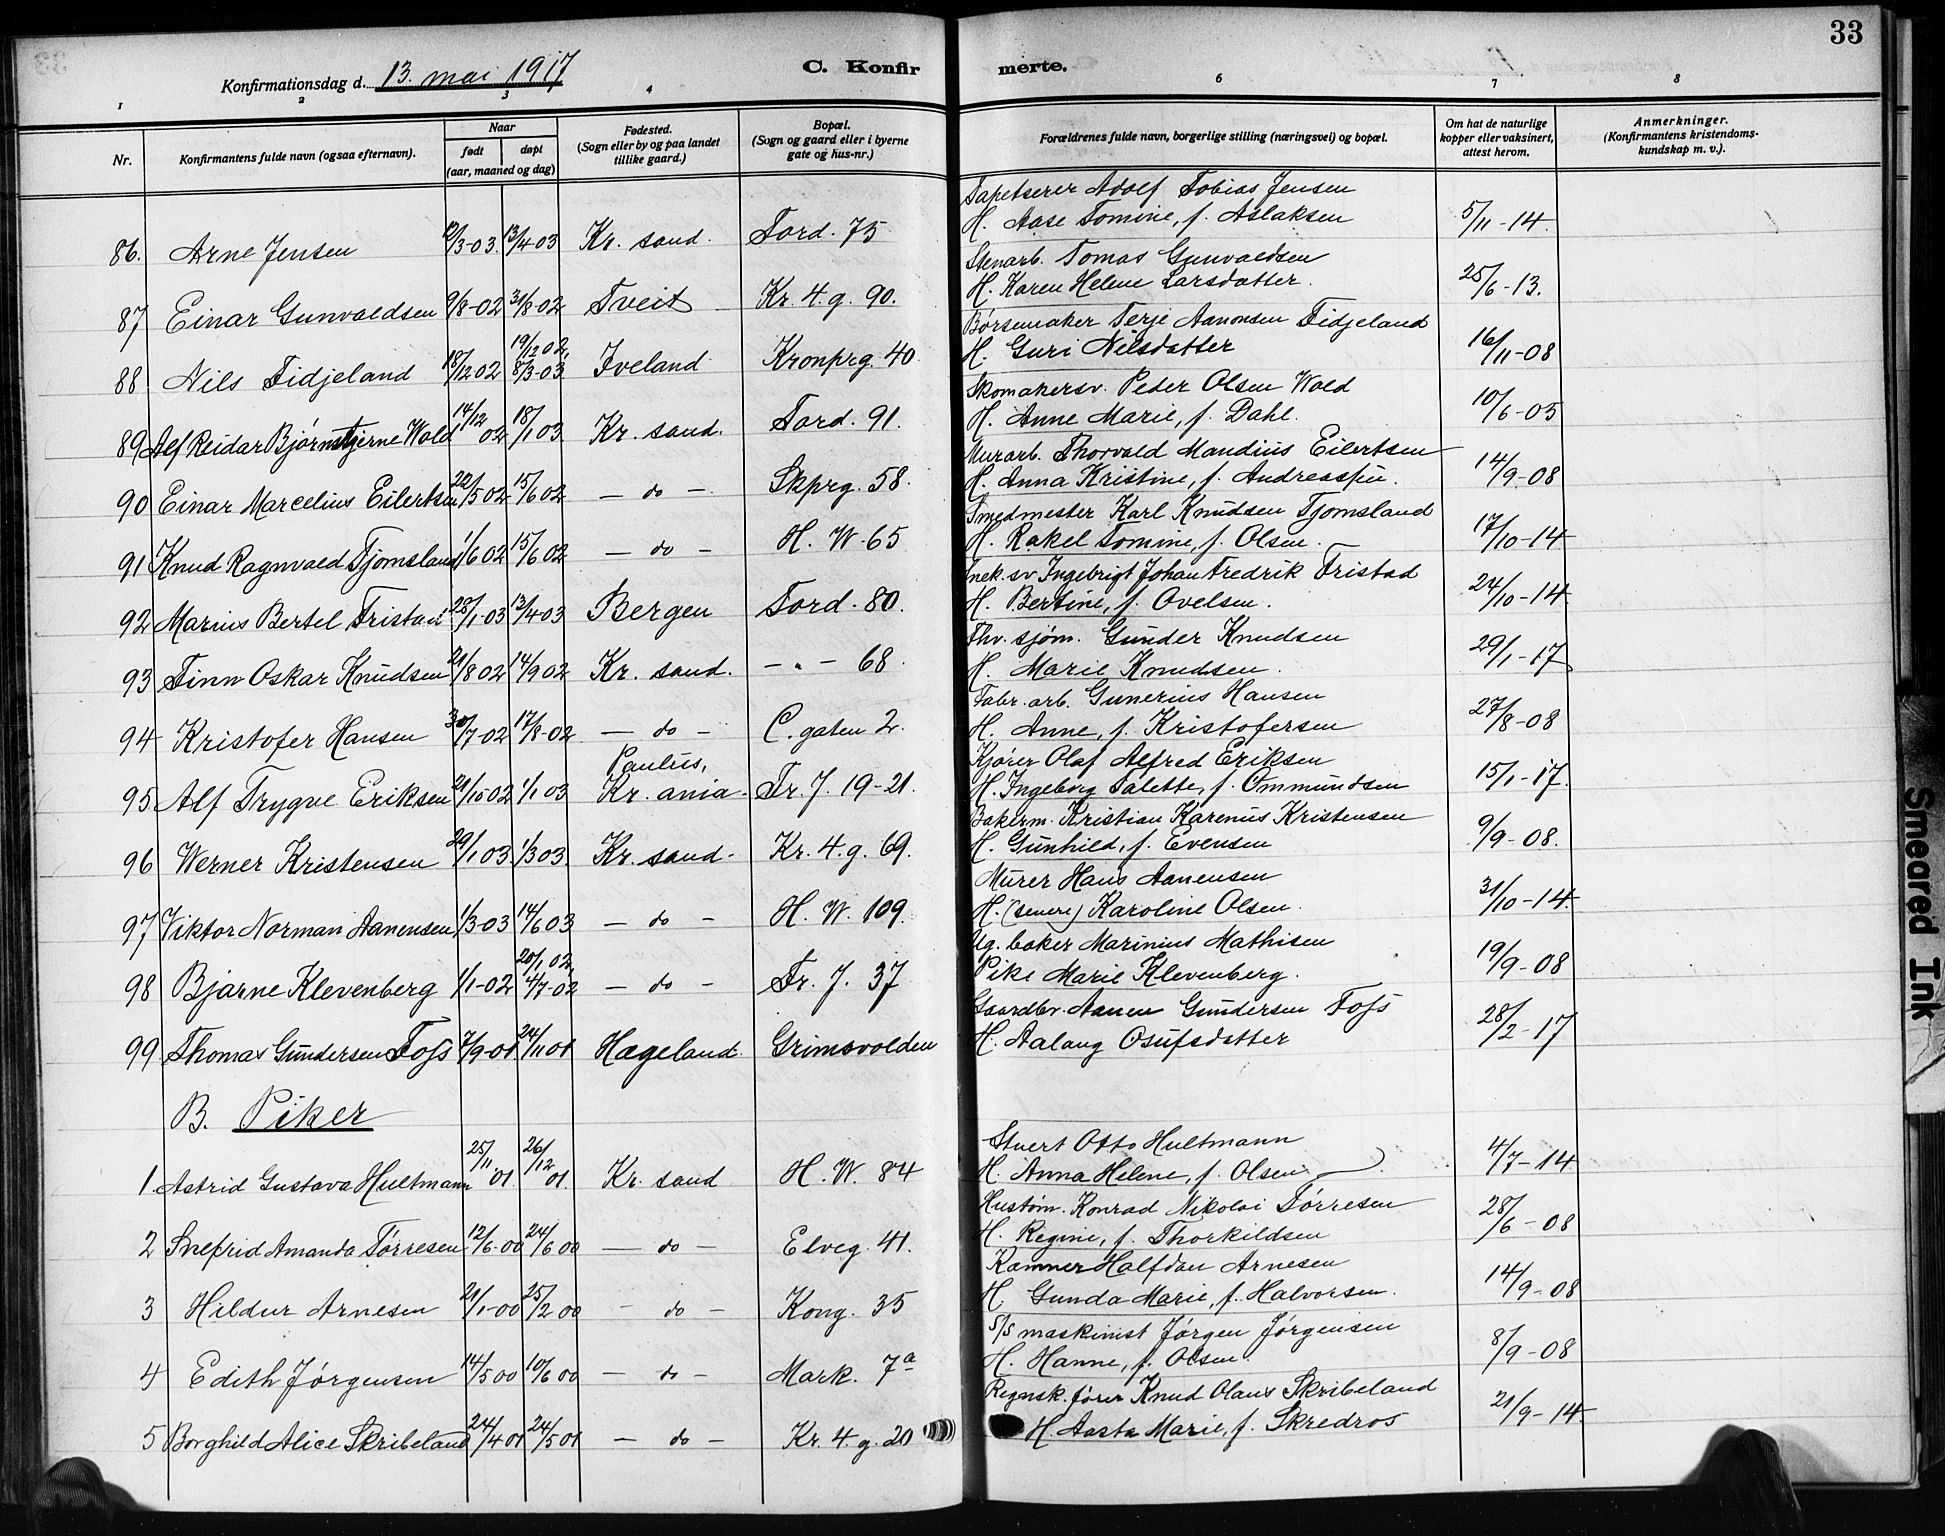 33
Konfirmationsdag d. 13. mai 1917
C. Konfirmerte.
1 2 3 4 6 7 8
Nr.
Konfirmantens fulde navn (ogsaa efternavn).
Naar
født
døpt
(aar, maaned og dag)
Fødested.
(Sogn eller by og paa landet
tillike gaard.)
Bopæl.
(Sogn og gaard eller i byerne
gate og hus-nr.)
Forældrenes fulde navn, borgerlige stilling (næringsvei) og bopæl.
Om hat de naturlige
kopper eller vaksinert,
attest herom.
Anmerkninger.
(Konfirmantens kristendoms-
kundskap m. v.).
Tapetserer Adolf Tobias Jensen
86. Arne Jensen 12/3-03. 13/4-03 Kr. sand. Tord. 75 H. Aase Tomine, f. Aslaksen 5/11-14.
Stenarb. Tomas Gunvaldsen
87 Einar Gunvaldsen 9/8-02 31/8-02 Tveit Kr. 4. g. 90. H. Karen Helene Larsdatter. 25/6-13.
Børsemaker Terje Aanonsen Fidjeland
88 Nils Fidjeland 18/12 02 19/12 02, 8/3-03 Iveland Kronprg. 40 H. Guri Nilsdatter 16/11-08
Skomakersv. Peder Olsen Wold
89 Alf Reidar Bjørnstjerne Wold 14/12 02 18/1 03 Kr. sand. Tord. 91. H. Anne Marie, f. Dahl. 10/6-05
Murarb. Thorvald Mandius Eilertsen
90 Einar Marcelius Eilertsen 22/5 02 15/6 02 — do — Skprg. 58. H. Anna Kristine, f. Andreassen. 14/9-08
Smedmester Karl Knudsen Tjomsland
91 Knud Ragnvald Tjomsland 1/6 02 15/6 02 — do — H. W. 65 H. Rakel Tomine, f. Olsen. 17/10-14
Snek.sv Ingebrigt Johan Fredrik Fristad
92 Marius Bertel Fristad 28/1-03 13/4-03 Bergen Tord. 80. H. Bertine, f. Ovelsen. 24/10-14
Fhv. sjøm. Gunder Knudsen
93 Finn Oskar Knudsen 21/8 02 14/9 02 Kr. sand. — " — 68. H. Marie Knudsen. 29/1-17
Fabr. arb. Gunerius Hansen
94 Kristofer Hansen 30/7-02 17/8-02 — do — C. gaten 2. H. Anne, f. Kristofersen 27/8-08
Kjører Olaf Alfred Eriksen
95 Alf Trygve Eriksen 21/10 02 1/1 03 Paulus, Kr. ania. Fr. J. 19-21. H. Ingeborg Salette, f. Ommundsen 15/1-17.
Bakerm. Kristian Karenus Kristensen
96 Werner Kristensen 29/1 03 1/3 03. Kr. sand. Kr. 4. g. 69. H. Gunhild, f. Evensen 9/9-08.
Murer Hans Aanensen
97 Viktor Norman Aanensen 1/3-03 14/6 03 — do — H. W. 109. H. (senere) Karoline Olsen. 31/10-14.
Ug. baker Marinius Mathisen
98 Bjarne Klevenberg 1/1-02 20/1 02, 4/7-02 — do — Fr. J. 37 Pike Marie Klevenberg. 19/9-08
Gaardbr. Aanen Gundersen Foss
99 Thomas Gundersen Foss 7/9-01 24/11 01 Hægeland. Grimsvolden H. Aalaug Osufsdatter 28/2-17
B. Piker
Stuert Otto Hultmann
1. Astrid Gustava Hultmann 25/11 01. 26/12 01. Kr. sand H. W. 84 H. Anna Helene, f. Olsen 4/7-14
Hustøm. Konrad Nikolai Tørresen
2 Snefrid Amanda Tørresen 12/6-00 24/6 00 — do — Elveg. 41. H. Regine, f. Thorkildsen 28/6-08
Kamner Halfdan Arnesen
3 Hildur Arnesen 21/1-00 25/2 00 — do — Kong. 35 H. Gunda Marie, f. Halvorsen. 14/9-08
S/S maskinist Jørgen Jørgensen
4 Edith Jørgensen 14/5 00 10/6 00 — do — Mark. 7a H. Hanne, f. Olsen. 8/9-08
Regnsk. fører Knud Olaus Skribeland
5 Borghild Alice Skribeland 24/4 01 24/5 01 — do — Kr. 4. g. 20 H. Aasta Marie, f. Skredros 21/9-14
Smeared Ink